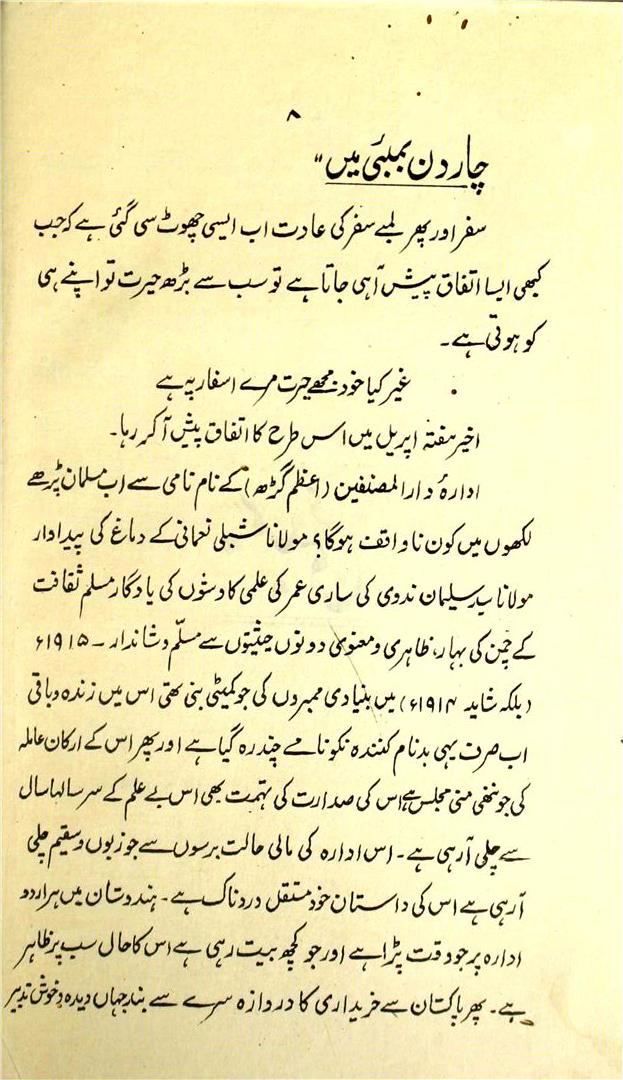 ۸
چار دن بمبئی میں "
سفر اور پھر لمبے سفر کی عادت اب ایسی چھوٹ سی گئی ہے کہ جب
کبھی ایسا اتفاق پیش آہی جاتا ہے تو سب سے بڑھ حیرت تو اپنے ہی
کو ہوتی ہے۔
غیر کیا خود مجھے حیرت مرے اسفار پہ ہے
اخیر ہفتہ اپریل میں اس طرح کا اتفاق پیش آ کر رہا۔
ادارۂ دارالمصنفین (اعظم گڑھ) کے نام نامی سے اب مسلمان پڑھے
لکھوں میں کون ناواقف ہوگا؟ مولانا شبلی نعمانی کے دماغ کی پیداوار
مولانا سید سلیمان ندوی کی ساری عمر کی علمی کاوشوں کی یادگار مسلم ثقافت
کے چمن کی بہار، ظاہری و معنوی دونوں حیثیتوں سے مسلّم و شاندار۔ ۱۹۱۵ء
(بلکہ شاید ۱۹۱۴ء) میں بنیادی ممبروں کی جو کمیٹی بنی تھی اس میں زندہ و باقی
اب صرف یہی بدنام کنندہ نکونامے چند رہ گیا ہے اور پھر اس کے ارکان عاملہ
کی جو ننھی منی مجلس ہے اس کی صدارت کی تہمت بھی اس بے علم کے سر سالہا سال
سے چلی آرہی ہے۔ اس ادارہ کی مالی حالت برسوں سے جو زبوں و سقیم چلی
آرہی ہے اس کی داستان خود مستقل دردناک ہے۔ ہندوستان میں ہر اردو
ادارہ پر جو وقت پڑا ہے اور جو کچھ بیت رہی ہے اس کا حال سب پر ظاہر
ہے۔ پھر پاکستان سے خریداری کا دروازہ سرے سے بند جہاں دیدہ و خوش تدبیر